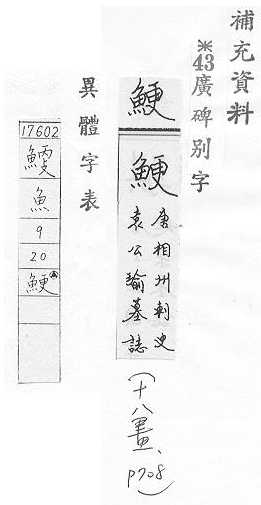 補充資料
※43廣碑别字
鯁
鯁
唐相州刺史
袁公瑜墓誌
(十八畫、p708)
異體字表
17602
魚
9
20
鯁